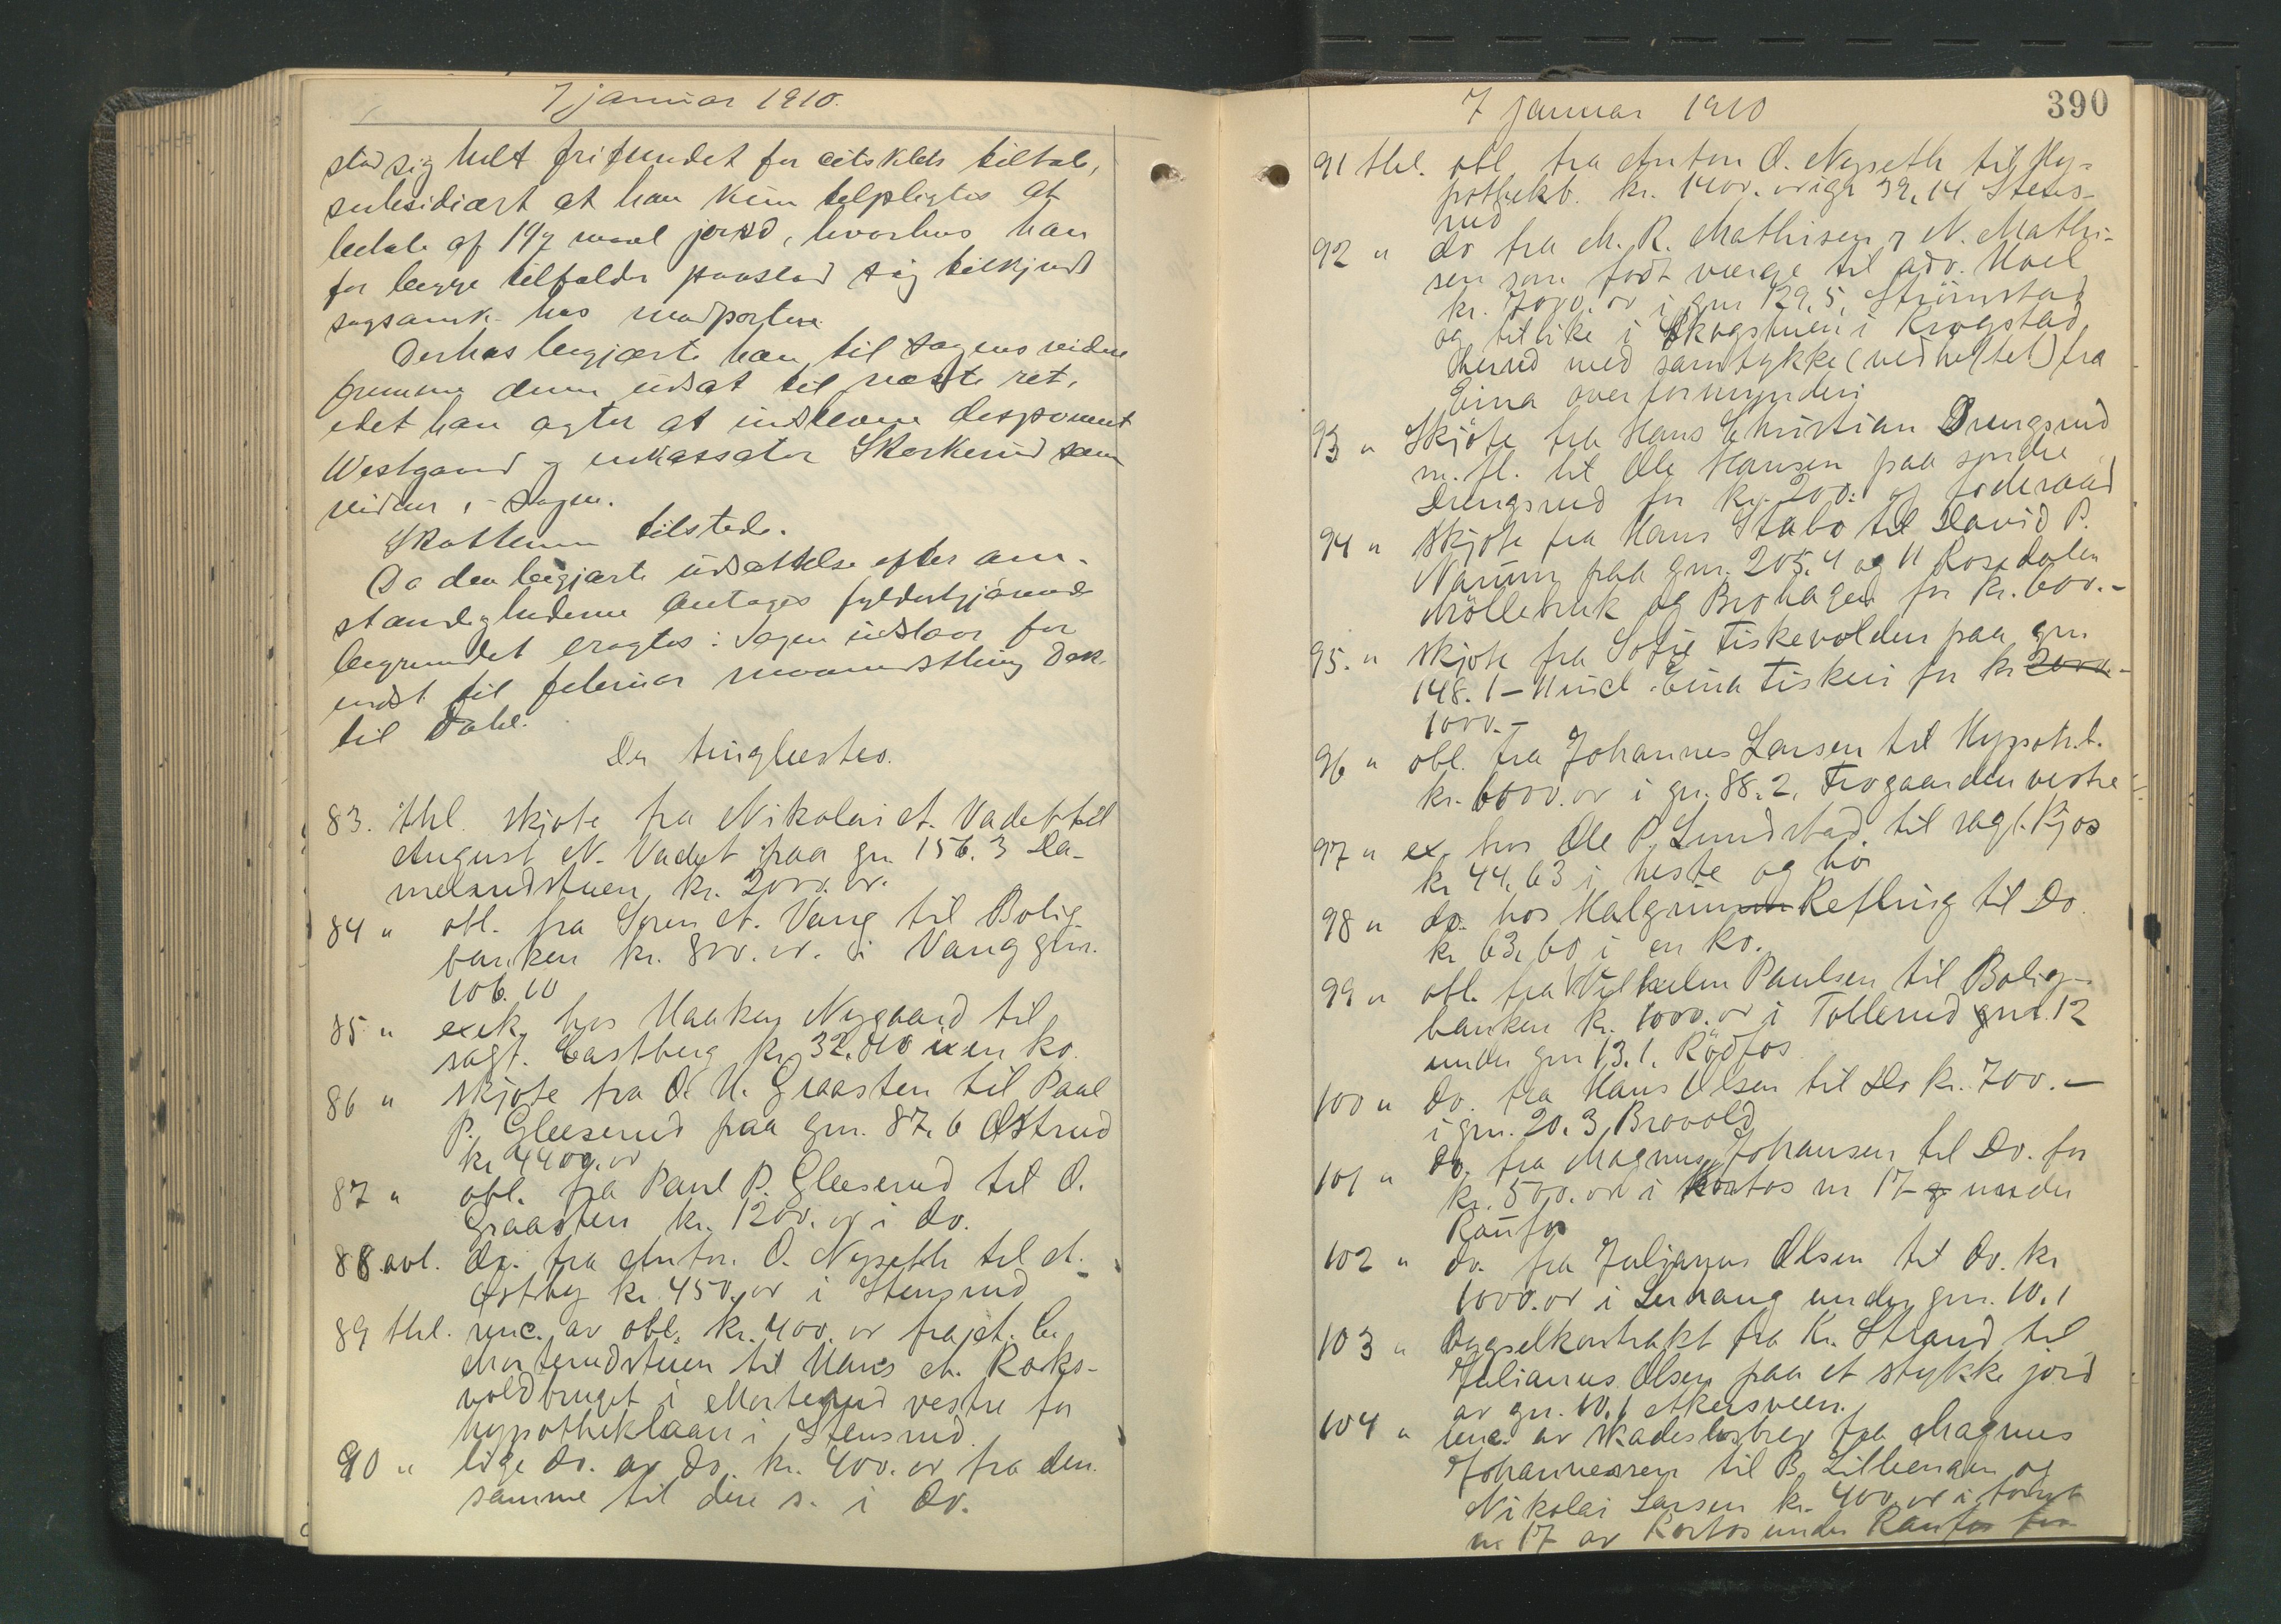 7 januar 1910.
stod sig helt frifundet for citskilds tiltale,
subsidiært at han kun tilpligtes at
betale af 197 maal jord, hvorhos han
for begge tilfælde paastod sig tilkjendt
sagsomk. hos modparten.
Derhos begjærte han til sagens videre
fremme denne udsat til næste ret,
idet han agter at indstevne disponent
Westgaard og inkassator Skorkerud som
vidner i sagen.
Skattum tilstede.
Da den begjærte udsættelse efter om-
stændighederne antages fyldestgjørende
begrundet eragtes: Sagen udstaar for
indst til februar maanedsthing
til Dahl.
Der tinglæstes.
83. thl. skjøte fra Nikolai A. Vadet til
August N. Vadet paa gn. 156.3 La-
melandstuen, kr. 2000.or.
84 " obl. fra Søren A. Vang til Bolig
banken kr. 800.or. i Vang gn.
106.10
85 " exek. hos Haakon Nygaard til
sagf. Castberg kr. 32.00 i en ko.
86 " skjøte fra O. H. Graasten til Paul
P. Glæserud paa gn. 87.6 Østrud
kr 4400.or
87 " obl. fra Paul P. Glæserud til O.
Graasten kr. 1200.or i do.
88. avl. do. fra Anton O. Nyseth til A.
Østby kr. 450.or i Stensrud
89 thl. unc. av obl. kr. 400.or fra A.
Morterudstuen til Hans A. Roks-
voldbruget i Morterud vestre for
hypotheklaan i Stensrud.
90 " lige do. av do. kr. 400.or fra den
samme til den s. i do.
7 januar 1910
390
91 thl. obl fra Anton O. Nyseth til Hy-
pothekb. kr. 1400.or i gn 39,14 Stens-
rud
92 " do fra M. R. Mathisen og N. Mathi-
sen som født værge til adv. Hoel
kr. 7000.or i gn 129,5, Strömstad
og tillike i Skogstuen i Krogstad
herred med samtykke (vedheftet) fra
Eina overformynderi
93 " Skjøte fra Hans Christian Drengsrud
m. fl. til Ole Hansen paa søndre
Drengsrud for kr. 200. og føderaad
94 " skjøte fra Hans Stabo til David P.
Narum paa gnr. 205.4 og 11 Rosedalen
Möllebruk og Brohagen for kr. 600.-
95. " skjøte fra Sofie Fiskevolden paa gn
148.1 - Hund-Eina Fiskeri for kr 2000.-
1000.-
96 " obl. fra Johannes Larsen til Hypoth.b.
kr. 6000.or i gn. 88.2. Frogaarden vestre
97 " ex. hos Ole P. Lundstad til sagf. Kjos
kr 44.63 i heste og hö
98 " do. hos Halgrim Refling til Do.
kr 63,60 i en ko.
99 " obl. fra Vilhelm Paulsen til Bolig-
banken kr. 1000.or i Tollerud gn 1.12
under gn 13.1. Rödfos
100 " do. fra Hans Olsen til do kr. 700.-
i gn. 20.3, Brovold
101 " do. fra Magnus Johansen til Do. for
kr. 500.or i Kortos nr 17 under
Raufos
102 " do. fra Julianus Olsen til do. kr
1000.or i Lerhaug under gn. 10.1
103 " bygselkontrakt fra Kr. Strand til
Julianus Olsen paa et stykke jord
av gn. 10.1 Akersveen.
104 " unc. av skadeslosbrev fra Magnus
Johannessen til B. Lillieengen og
Nikolai Larsen kr. 400.or i tomt
nr 17 av Kortos under Raufos fra